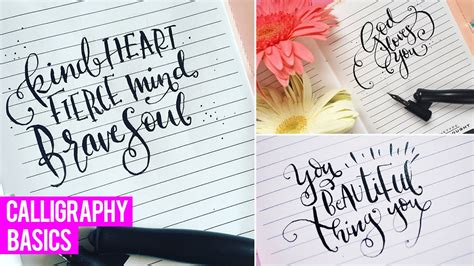 kind HEART
FIERCE mind
Brave Soul
God
loves
You
You
BEAUTIFUL
Thing you
CALLIGRAPHY
BASICS